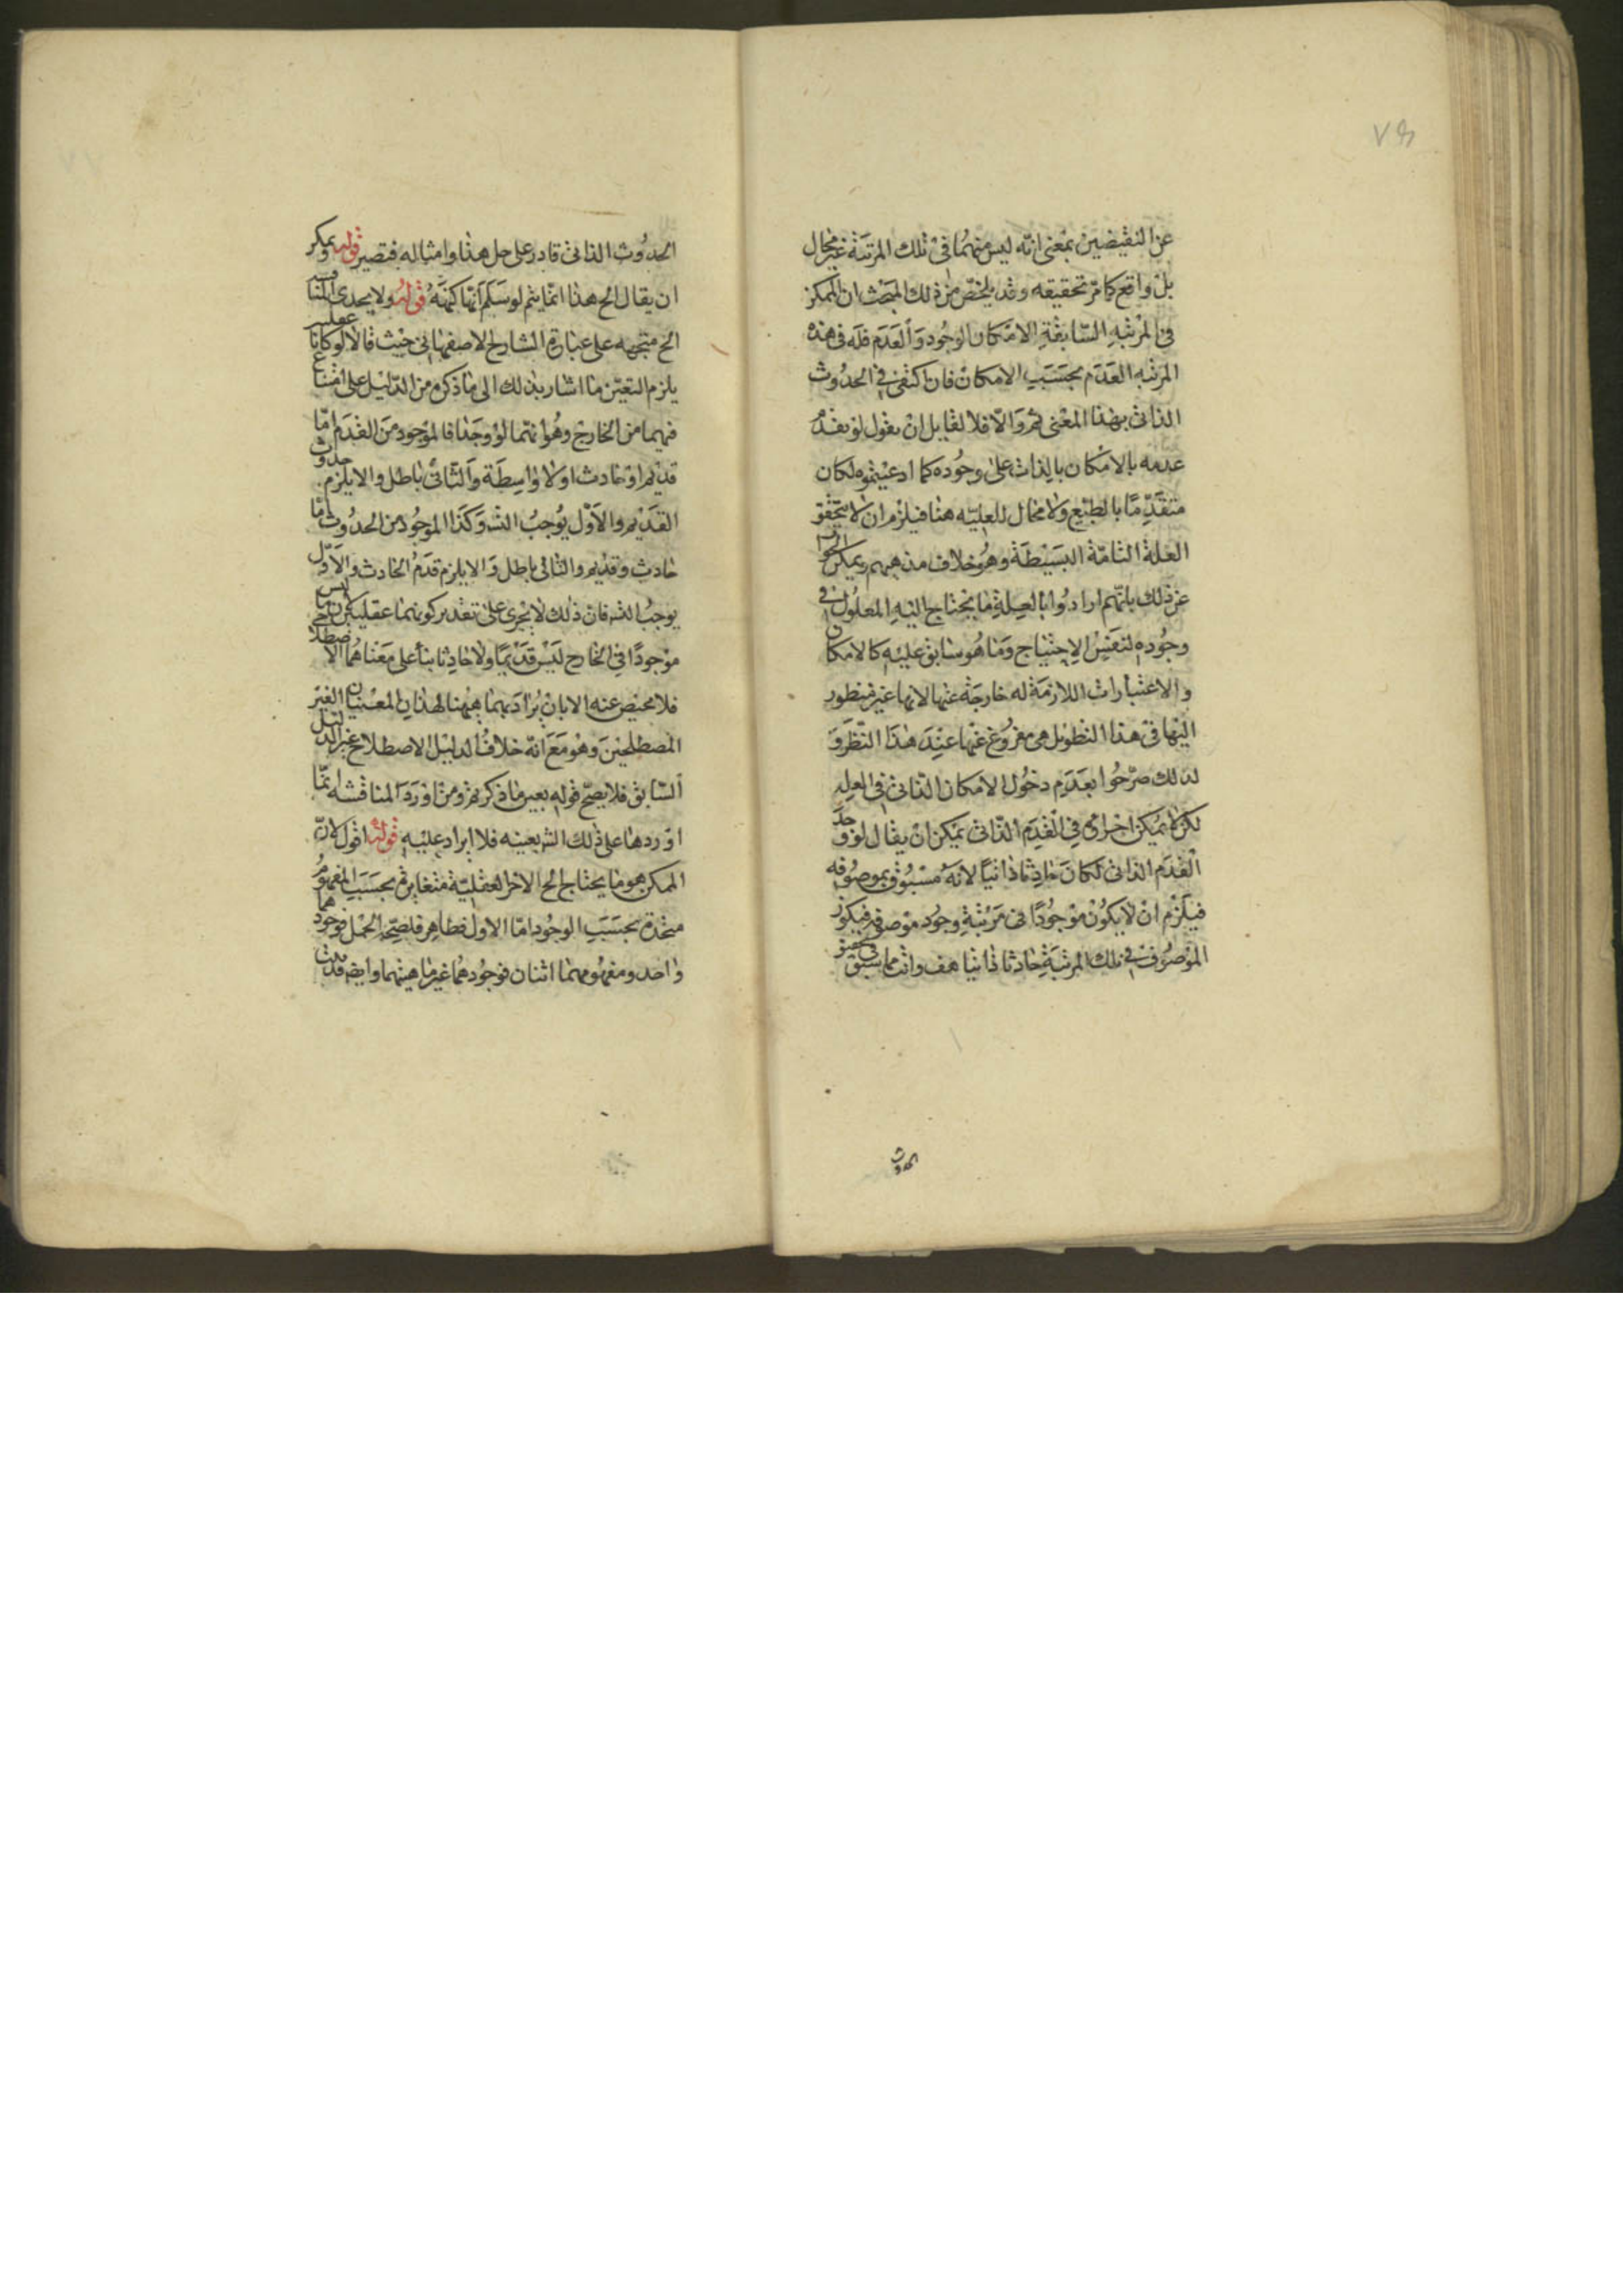 ٧٦
عن النقيضين بمعنى انه ليس منهما فى تلك المرتبة غير محال
بل واقع كما مر تحقيقه وقد يلخص من ذلك المبحث ان الممكن
فى المرتبه السابقة الامكان الوجود والعدم فله فى هذه
المرتبه العدم بحسب الامكان فان اكتفى فى الحدوث
الذاتى بهذا المعنى ثم والا فلا لقابل ان يقول لو تقدم
عدمه بالامكان بالذات على وجوده كما ادعيتموه لكان
متقدما بالطبع ولا مجال للعلية هنا فيلزم ان لا يتحقق
العلة التامة البسيطة وهو خلاف مذهبهم ويمكن الجواب
عن ذلك بانهم ارادوا بالعلة ما يحتاج اليه المعلول فى
وجوده لنفس الاحتياج وما هو سابق عليه كالامكان
والاعتبارات اللازمة له خارجة عنها لانها غير منظور
اليها فى هذا النظر بل هى مفروغ عنها عند هذا النظر و
لذلك صرحوا بعدم دخول الامكان الذاتى فى العله
لكن لا يمكن اجراؤه فى القدم الذاتى يمكن ان يقال لو وجد
القدم الذاتى لكان حادثا ذاتيا لانه مسبوق بموصوفه
فيلزم ان لا يكون موجودا فى مرتبة وجود موصوفه فيكون
الموصوف فى تلك المرتبة حادثا ذاتيا هف واتما سبق
الحدوث
الحدوث الذاتى قادر على حل هذا وامثاله فتصير قوله ويمكن
ان يقال الخ هذا انما يتم لو سلم انها كهنه قوله ولا يجدى المناقشه
الخ متجهه على عبارة الشارح الاصفهانى حيث قال لا لو كانا عقليين
يلزم التعين ما اشار بذلك الى ما ذكره من الدليل على امتناع
فهما من الخارج وهو انهما لو وجدا فالموجود من القدم اما
قديم او حادث اولا واسطة والثانى باطل والا يلزم حدوث
القديم والاول يوجب التس وكذا الموجود من الحدوث اما
حادث وقديم والثانى باطل والا يلزم قدم الحادث والاول
يوجب التس فان ذلك لا يجرى على تقدير كونهما عقليين ليس
موجودا فى الخارج ليس قديما ولا حادثا بناء على معناهما الاصطلاحى
فلا محيص عنه الا بان يراد بهما ههنا لهذان المعنيان الغير
المصطلحين وهو مع انه خلاف الدليل الاصطلاح غير الدليل
السابق فلا يصح قوله بعين ما ذكرتم ومن اورد المناقشه انما
اوردها على ذلك التس بعينه فلا ايراد عليه قوله اقول لان
الممكن هو ما يحتاج الخ الاخر العقلية متغايرة بحسب المفهوم
متحدة بحسب الوجود اما الاول فظاهر فلصحة الحمل فوجودهما
واحد ومفهومهما اثنان فوجودهما غير ماهيتهما وايضا قد